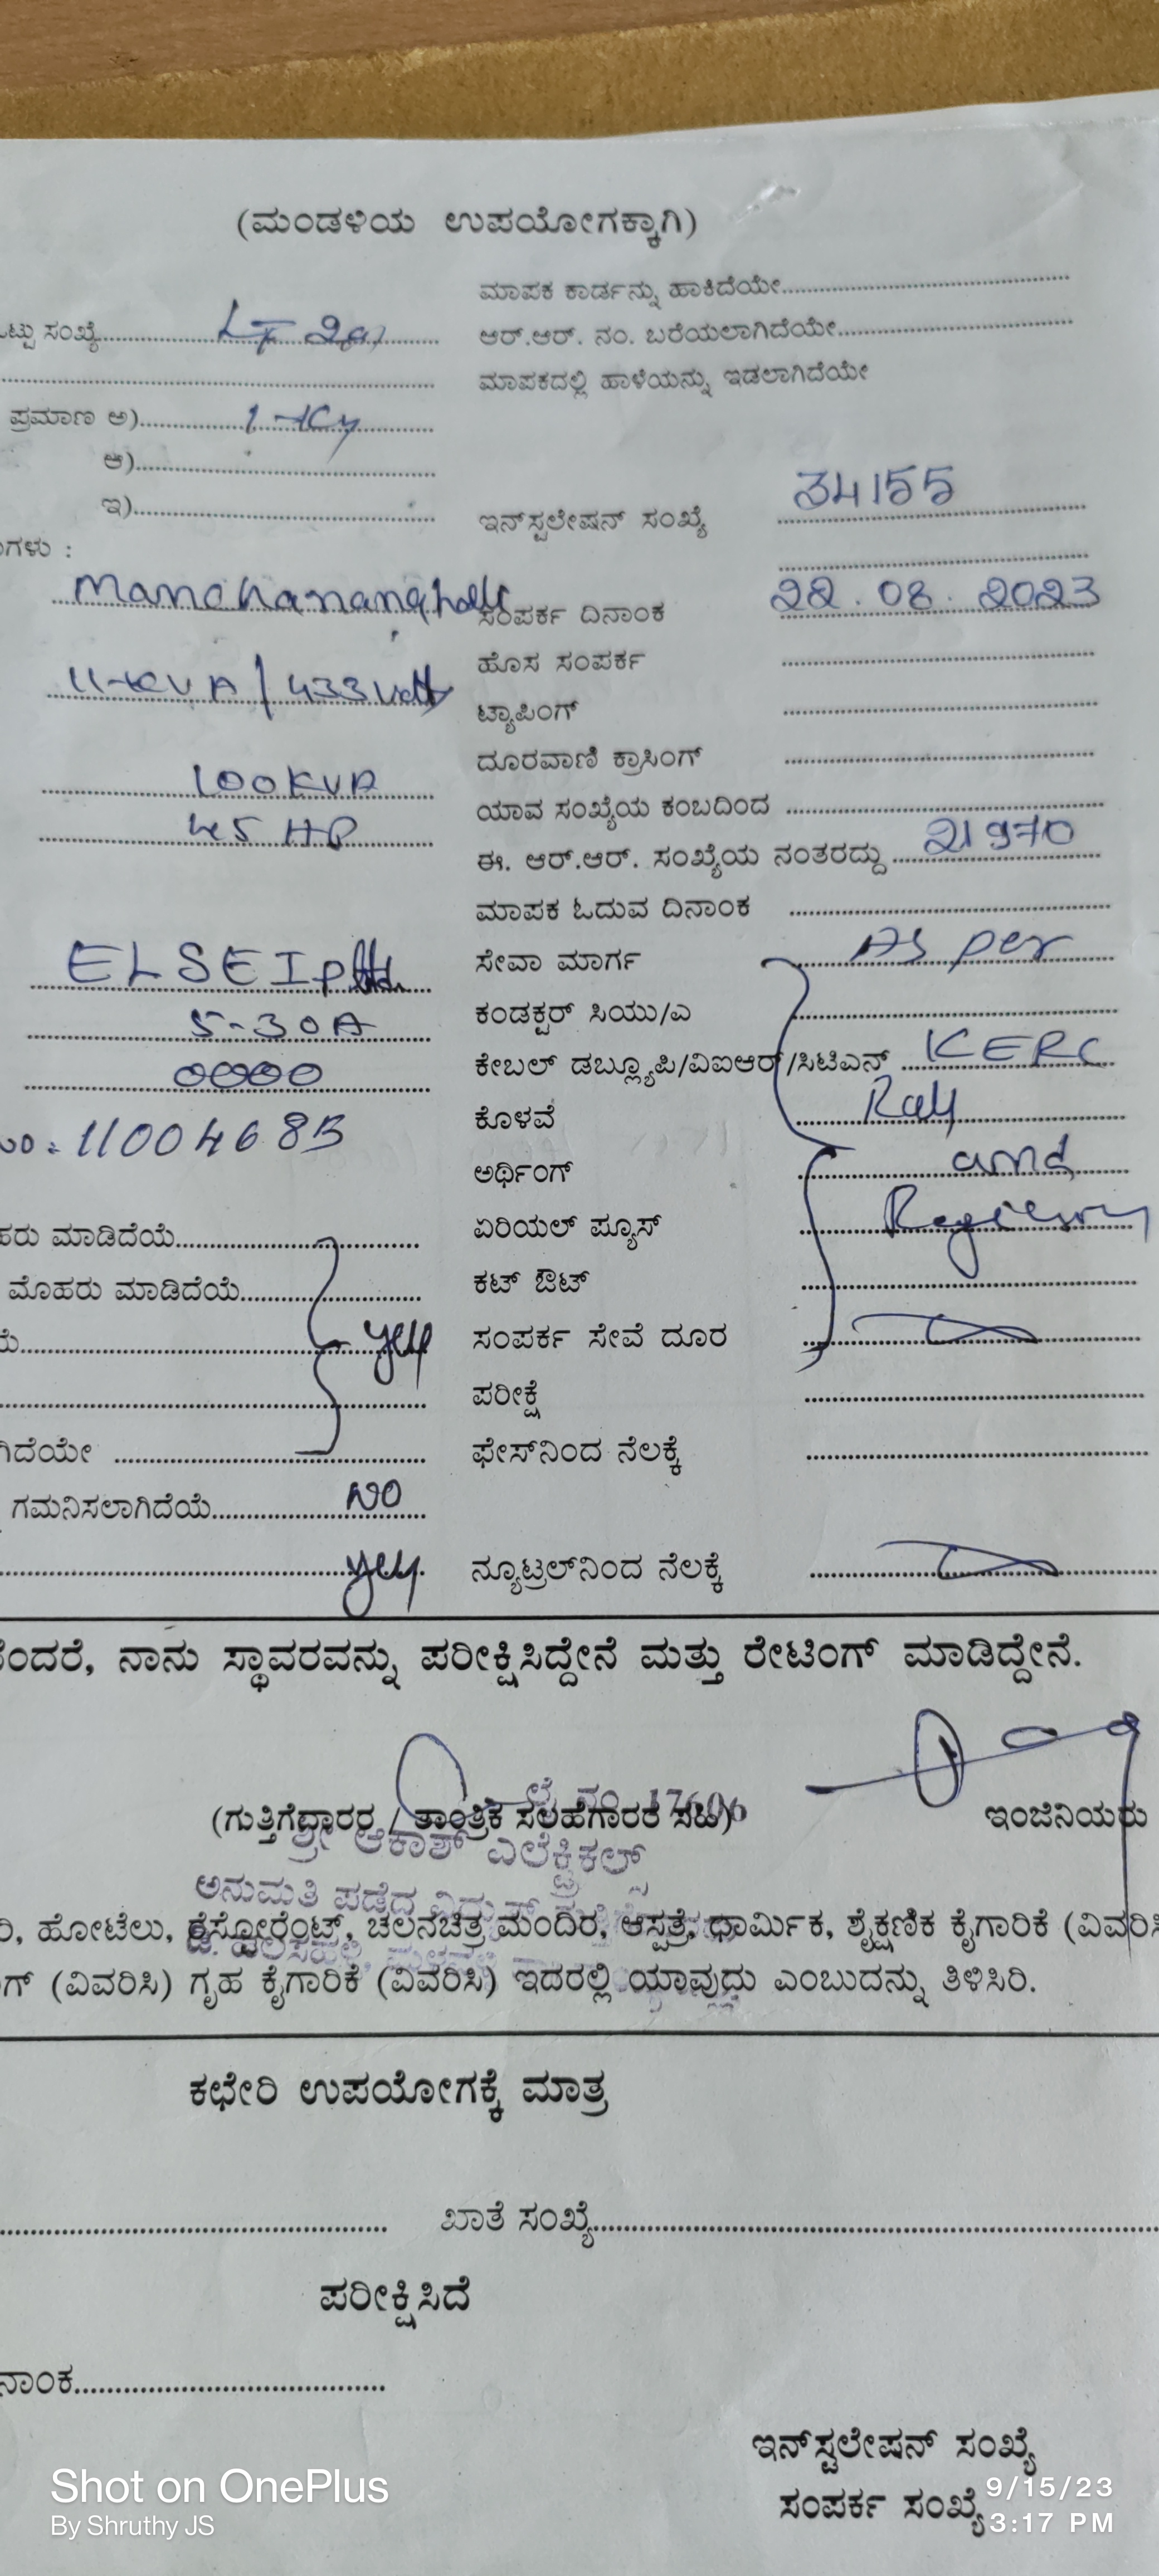 (ಮಂಡಳಿಯ ಉಪಯೋಗಕ್ಕಾಗಿ)
ಮಾಪಕ ಕಾರ್ಡನ್ನು ಹಾಕಿದೆಯೇ
ಸಂಖ್ಯೆ
ಆರ್.ಆರ್. ನಂ. ಬರೆಯಲಾಗಿದೆಯೇ
ಮಾಪಕದಲ್ಲಿ ಹಾಳೆಯನ್ನು ಇಡಲಾಗಿದೆಯೇ
ಪ್ರಮಾಣ ಅ)
ಆ)
ಇ)
ಇನ್‌ಸ್ಟಲೇಷನ್ ಸಂಖ್ಯೆ 34155
ಸಂಪರ್ಕ ದಿನಾಂಕ 22.08.2023
ಹೊಸ ಸಂಪರ್ಕ
11-KVA / 433 Volt
ಟ್ಯಾಪಿಂಗ್
ದೂರವಾಣಿ ಕ್ರಾಸಿಂಗ್
100 KVA
ಯಾವ ಸಂಖ್ಯೆಯ ಕಂಬದಿಂದ
45 HP
ಈ. ಆರ್.ಆರ್. ಸಂಖ್ಯೆಯ ನಂತರದ್ದು 21970
ಮಾಪಕ ಓದುವ ದಿನಾಂಕ
ELSEI
ಸೇವಾ ಮಾರ್ಗ As per
5-30A
ಕಂಡಕ್ಟರ್ ಸಿಯು/ಎ
0000
ಕೇಬಲ್ ಡಬ್ಲ್ಯೂಪಿ/ವಿಐಆರ್/ಸಿಟಿಎನ್ KERC
ಕೊಳವೆ
ಅರ್ಥಿಂಗ್ and
ಮಾಡಿದೆಯೆ
ಏರಿಯಲ್ ಪ್ಯೂಸ್
ಮೊಹರು ಮಾಡಿದೆಯೆ
ಕಟ್ ಔಟ್
yes
ಸಂಪರ್ಕ ಸೇವೆ ದೂರ
ಪರೀಕ್ಷೆ
ಫೇಸ್‌ನಿಂದ ನೆಲಕ್ಕೆ
ಗಮನಿಸಲಾಗಿದೆಯೆ NO
yes
ನ್ಯೂಟ್ರಲ್‌ನಿಂದ ನೆಲಕ್ಕೆ
ನಾನು ಸ್ಥಾವರವನ್ನು ಪರೀಕ್ಷಿಸಿದ್ದೇನೆ ಮತ್ತು ರೇಟಿಂಗ್ ಮಾಡಿದ್ದೇನೆ.
(ಗುತ್ತಿಗೆದ್ದಾರರ / ತಾಂತ್ರಿಕ ಸಲಹೆಗಾರರ ಸಹಿ)
ಇಂಜಿನಿಯರು
ಶ್ರೀ ಆಕಾಶ್ ಎಲೆಕ್ಟ್ರಿಕಲ್ಸ್
ಅನುಮತಿ ಪಡೆದ
ಹೋಟೆಲು, ರೆಸ್ಟೋರೆಂಟ್, ಚಲನಚಿತ್ರ ಮಂದಿರ, ಆಸ್ಪತ್ರೆ, ಧಾರ್ಮಿಕ, ಶೈಕ್ಷಣಿಕ ಕೈಗಾರಿಕೆ
(ವಿವರಿಸಿ) ಗೃಹ ಕೈಗಾರಿಕೆ (ವಿವರಿಸಿ) ಇದರಲ್ಲಿ ಯಾವುದು ಎಂಬುದನ್ನು ತಿಳಿಸಿರಿ.
ಕಛೇರಿ ಉಪಯೋಗಕ್ಕೆ ಮಾತ್ರ
ಖಾತೆ ಸಂಖ್ಯೆ
ಪರೀಕ್ಷಿಸಿದೆ
ಇನ್‌ಸ್ಟಲೇಷನ್ ಸಂಖ್ಯೆ
ಸಂಪರ್ಕ ಸಂಖ್ಯೆ
Shot on OnePlus
By Shruthy JS
9/15/23
3:17 PM